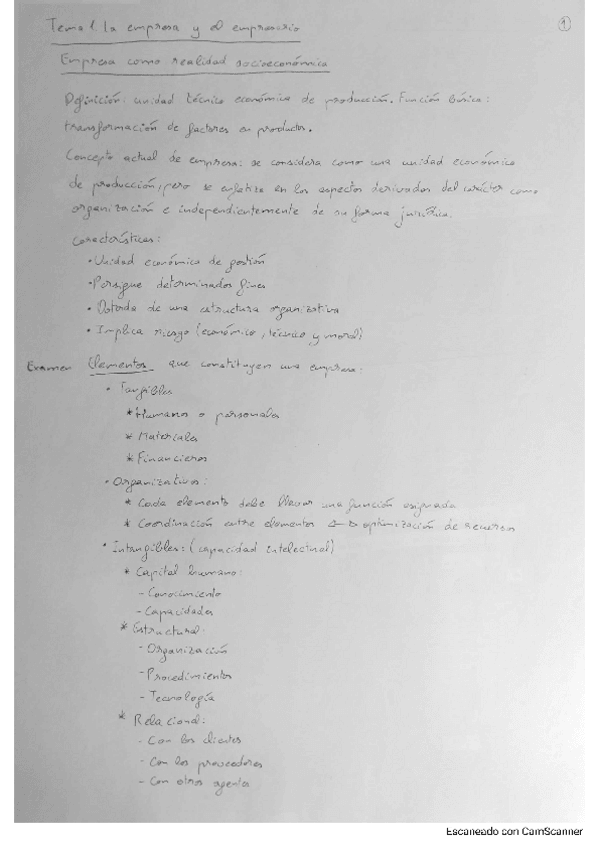 Tema 1. La empresa y el empresario
1
Empresa como realidad socioeconómica
Definición: unidad técnico económica de producción. Función básica:
transformación de factores en productos.
Concepto actual de empresa: se considera como una unidad económica
de producción, pero se enfatiza en los aspectos derivados del carácter como
organización e independientemente de su forma jurídica.
Características:
• Unidad económica de gestión
• Persigue determinados fines
• Dotada de una estructura organizativa
• Implica riesgo (económico, técnico y moral)
Examen Elementos que constituyen una empresa:
• Tangibles
* Humanos o personales
* Materiales
* Financieros
• Organizativos:
* Cada elemento debe llevar una función asignada
* Coordinación entre elementos ⇔ optimización de recursos
• Intangibles: (capacidad intelectual)
* Capital humano:
- Conocimiento
- Capacidades
* Estructural:
- Organización
- Procedimientos
- Tecnología
* Relacional:
- Con los clientes
- Con los proveedores
- Con otros agentes
Escaneado con CamScanner